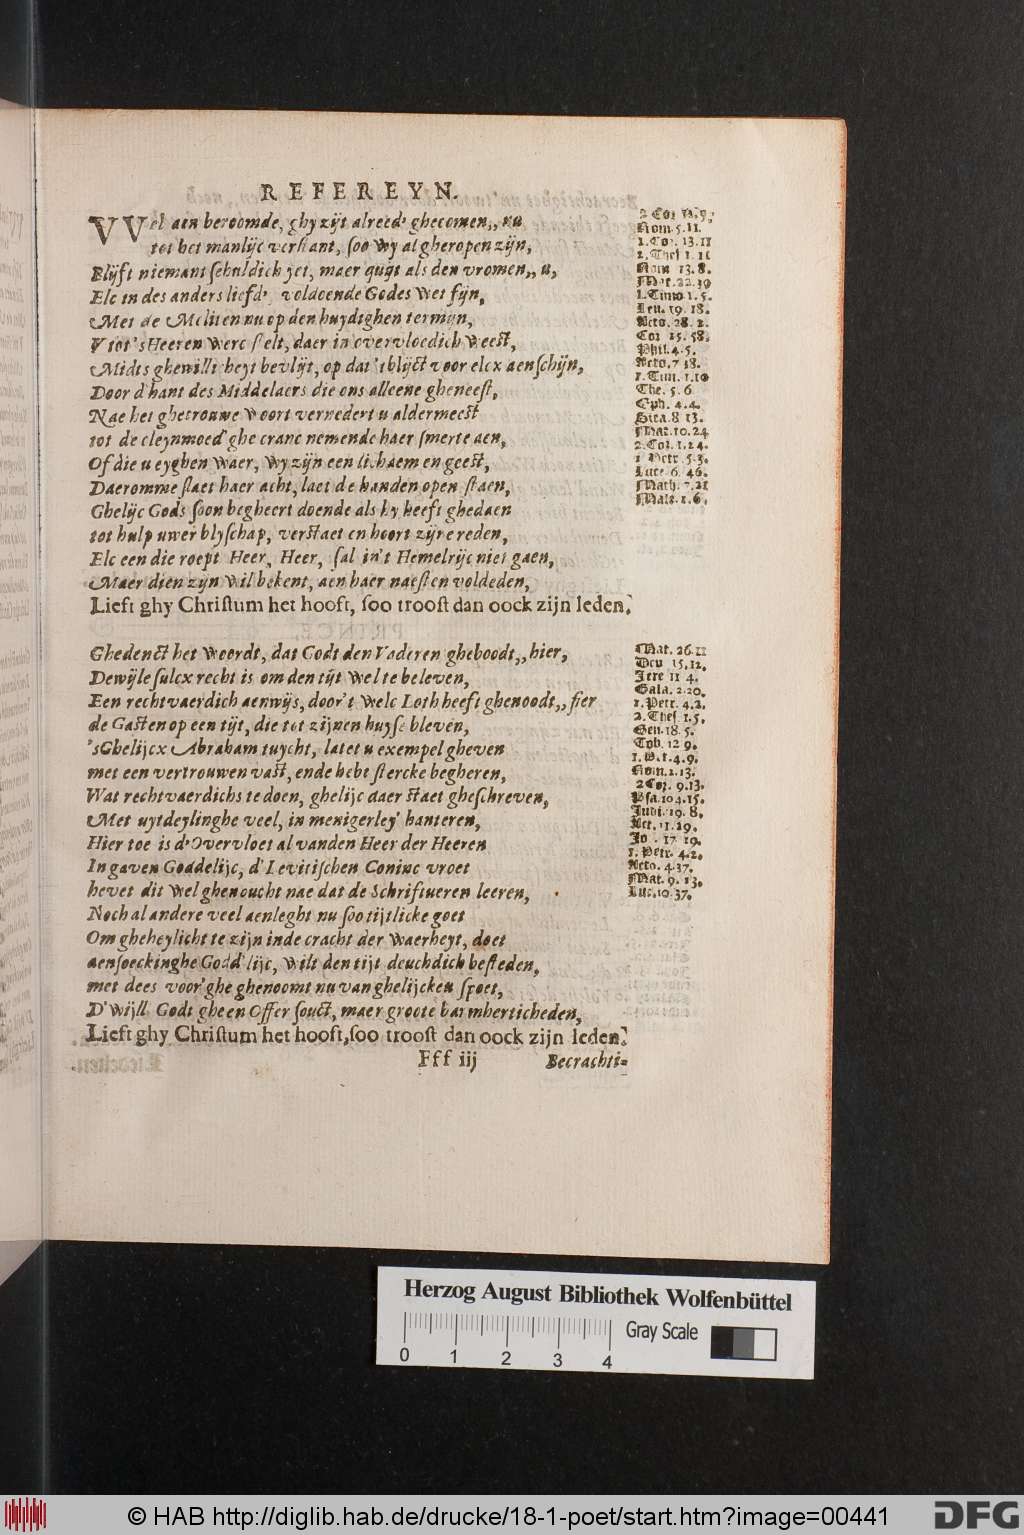 REFEREYN.
VVel aen beroomde, ghy zijt alreed' ghecomen,, nu
tot het manlijc verstant, soo wy al gheropen zijn,
Blijft niemant schuldich yet, maer quijt als den vromen,, u,
Elc in des anders liefd', voldoende Godes Wet fijn,
Met de Meliten nu op den huydighen termijn,
Vtot 'sHeeren werc stelt, daer in overvloedich weest,
Midts ghewillicheyt bevlijt, op dat 't blijct voor elcx aenschijn,
Door d'hant des Middelaers die ons alleene gheneest,
Nae het ghetrouwe woort vernedert u aldermeest
tot de cleynmoed'ghe cranc nemende haer smerte aen,
Of die u eyghen waer, wy zijn een lichaem en geest,
Daeromme slaet haer acht, laet de handen open staen,
Ghelijc Gods soon begheert doende als hy heeft ghedaen
tot hulp uwer blyschap, verstaet en hoort zijne reden,
Elc een die roept Heer, Heer, sal in't Hemelrijc niet gaen,
Maer dien zyn wil bekent, aen haer naesten voldeden,
Lieft ghy Christum het hooft, soo troost dan oock zijn leden.
Ghedenct het woordt, dat Godt den Vaderen gheboodt,, hier,
Dewijle sulcx recht is om den tijt wel te beleven,
Een rechtvaerdich aenwijs, door't welc Loth heeft ghenoodt,, fier
de Gasten op een tijt, die tot zijnen huyse bleven,
'sGhelijcx Abraham tuycht, latet u exempel gheven
met een vertrouwen vast, ende hebt stercke begheren,
Wat rechtvaerdichs te doen, ghelijc daer staet gheschreven,
Met uytdeylinghe veel, in menigerley hanteren,
Hier toe is d'Overvloet al vanden Heer der Heeren
In gaven Goddelijc, d'Levitischen Coninc vroet
hevet dit wel ghenoucht nae dat de Schriftueren leeren,
Noch al andere veel aenleght nu soo tijtlicke goet
Om gheheylicht te zijn inde cracht der waerheyt, doet
aensoeckinghe Godd'lijc, wilt den tijt deuchdich besteden,
met dees voor'ghe ghenoomt nu van ghelijcken spoet,
D'wijll Godt gheen Offer souct, maer groote barmherticheden,
Lieft ghy Christum het hooft, soo troost dan oock zijn leden.
Fff iij Becrachti=
Rom. 5. 11.
1. Cor. 13. 11
2. Thes 1. 11
Rom 13. 8.
Mat. 22. 39
1. Timo 1. 5.
Leu. 19. 18.
Acto. 28. 2.
Cor 15. 58.
Phil. 4. 5.
Acto. 7 18.
1. Tim. 1. 10
The. 5. 6
Eph. 4. 4.
Sira. 8 13.
Mat. 10. 24
2. Cor. 1. 24.
1 Petr 5. 3.
Luce 6. 46.
Math. 7. 21
Mala. 1. 6.
Mat. 26. 11
Deu 15. 12.
Jere 11 4.
Gala. 2. 20.
1. Petr. 4. 2.
2. Thes 1. 5.
Gen. 18. 5.
Tob. 12 9.
Rom. 2. 13.
2 Cor. 9. 13.
Psa. 104. 15.
Judi. 19. 8.
Act. 11. 29.
Jo. 17 19.
1. Petr. 4. 2.
Acto. 4. 37.
Mat. 9. 13.
Luc. 10. 37.
Herzog August Bibliothek Wolfenbüttel
Gray Scale
0 1 2 3 4
© HAB http://diglib.hab.de/drucke/18-1-poet/start.htm?image=00441
DFG